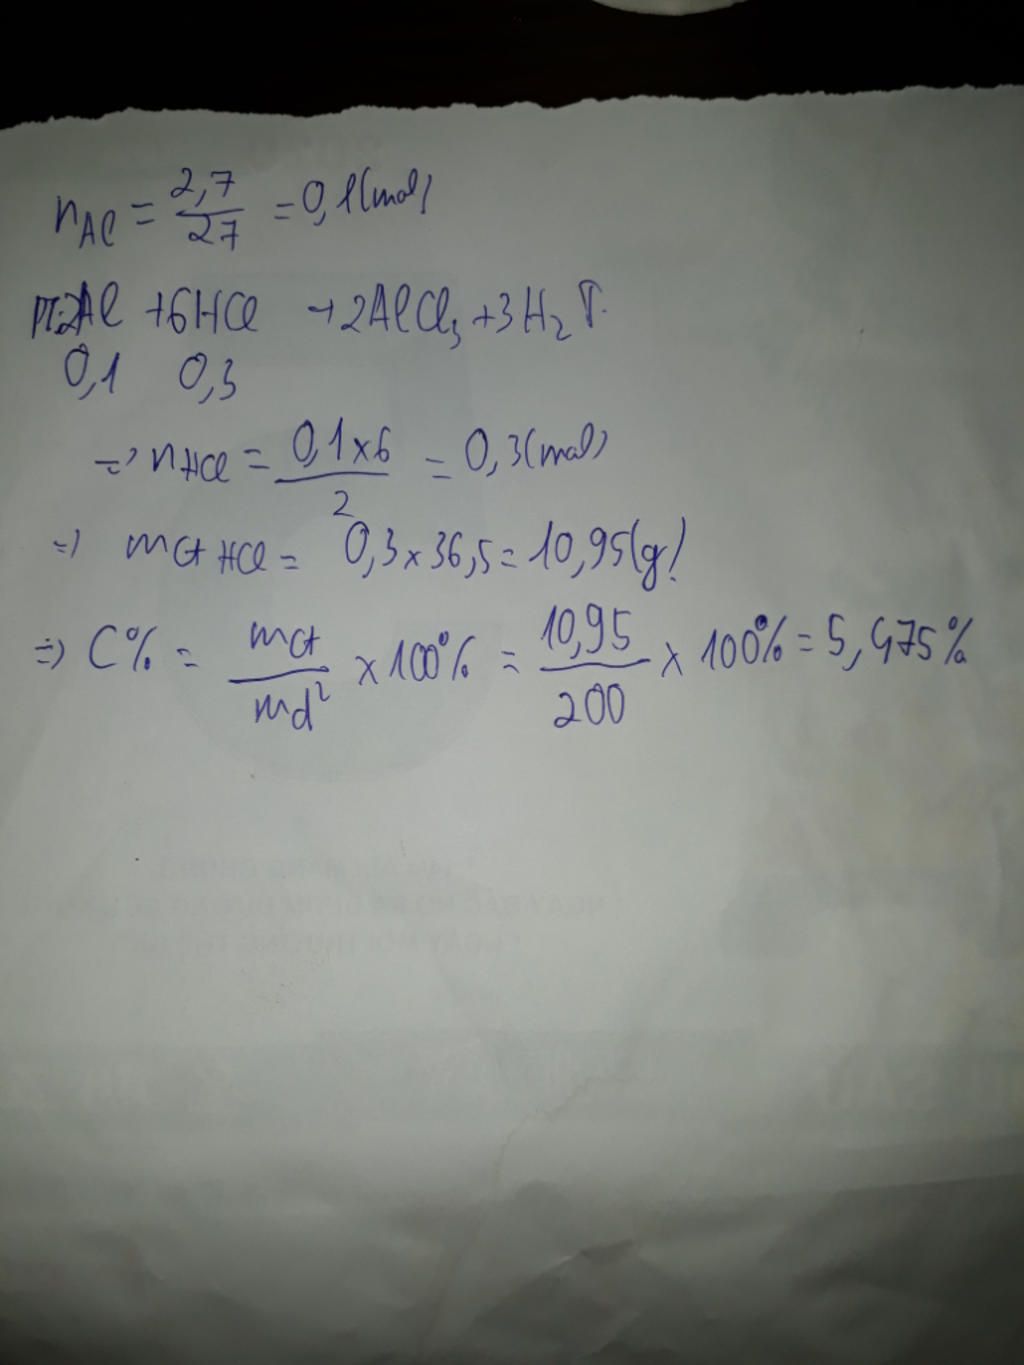 nAl = 2,7/27 = 0,1(mol)
PT: 2Al + 6HCl → 2AlCl₃ + 3H₂↑.
0,1 0,3
=> nHCl = 0,1x6/2 = 0,3(mol)
=> mct HCl = 0,3 x 36,5 = 10,95(g)
=> C% = mct/md² x 100% = 10,95/200 x 100% = 5,475%